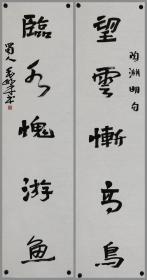 望雲慚高鳥
陶淵明句
臨水愧游魚
蜀人